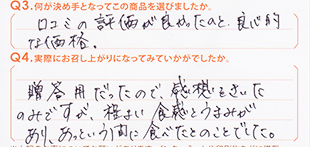 Q3.何が決め手となってこの商品を選びましたか。
口コミの評価が良かったのと、良心的
な価格。
Q4.実際にお召し上がりになってみていかがでしたか。
贈答用だったので、感想をきいた
のみですが、程よい食感とうまみが
あり、あっという間に食べたとのことでした。